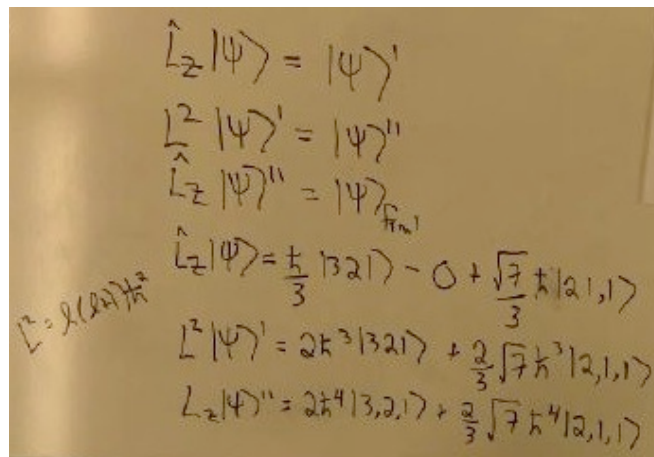 L̂z|ψ⟩ = |ψ⟩'
L²|ψ⟩' = |ψ⟩''
L̂z|ψ⟩'' = |ψ⟩final
L̂z|ψ⟩ = ħ/3 |321⟩ - 0 + √7/3 ħ|21,1⟩
L² = l(l+1)ħ²
L²|ψ⟩' = 2ħ³|321⟩ + 2/3 √7 ħ³|2,1,1⟩
Lz|ψ⟩'' = 2ħ⁴|3,2,1⟩ + 2/3 √7 ħ⁴|2,1,1⟩